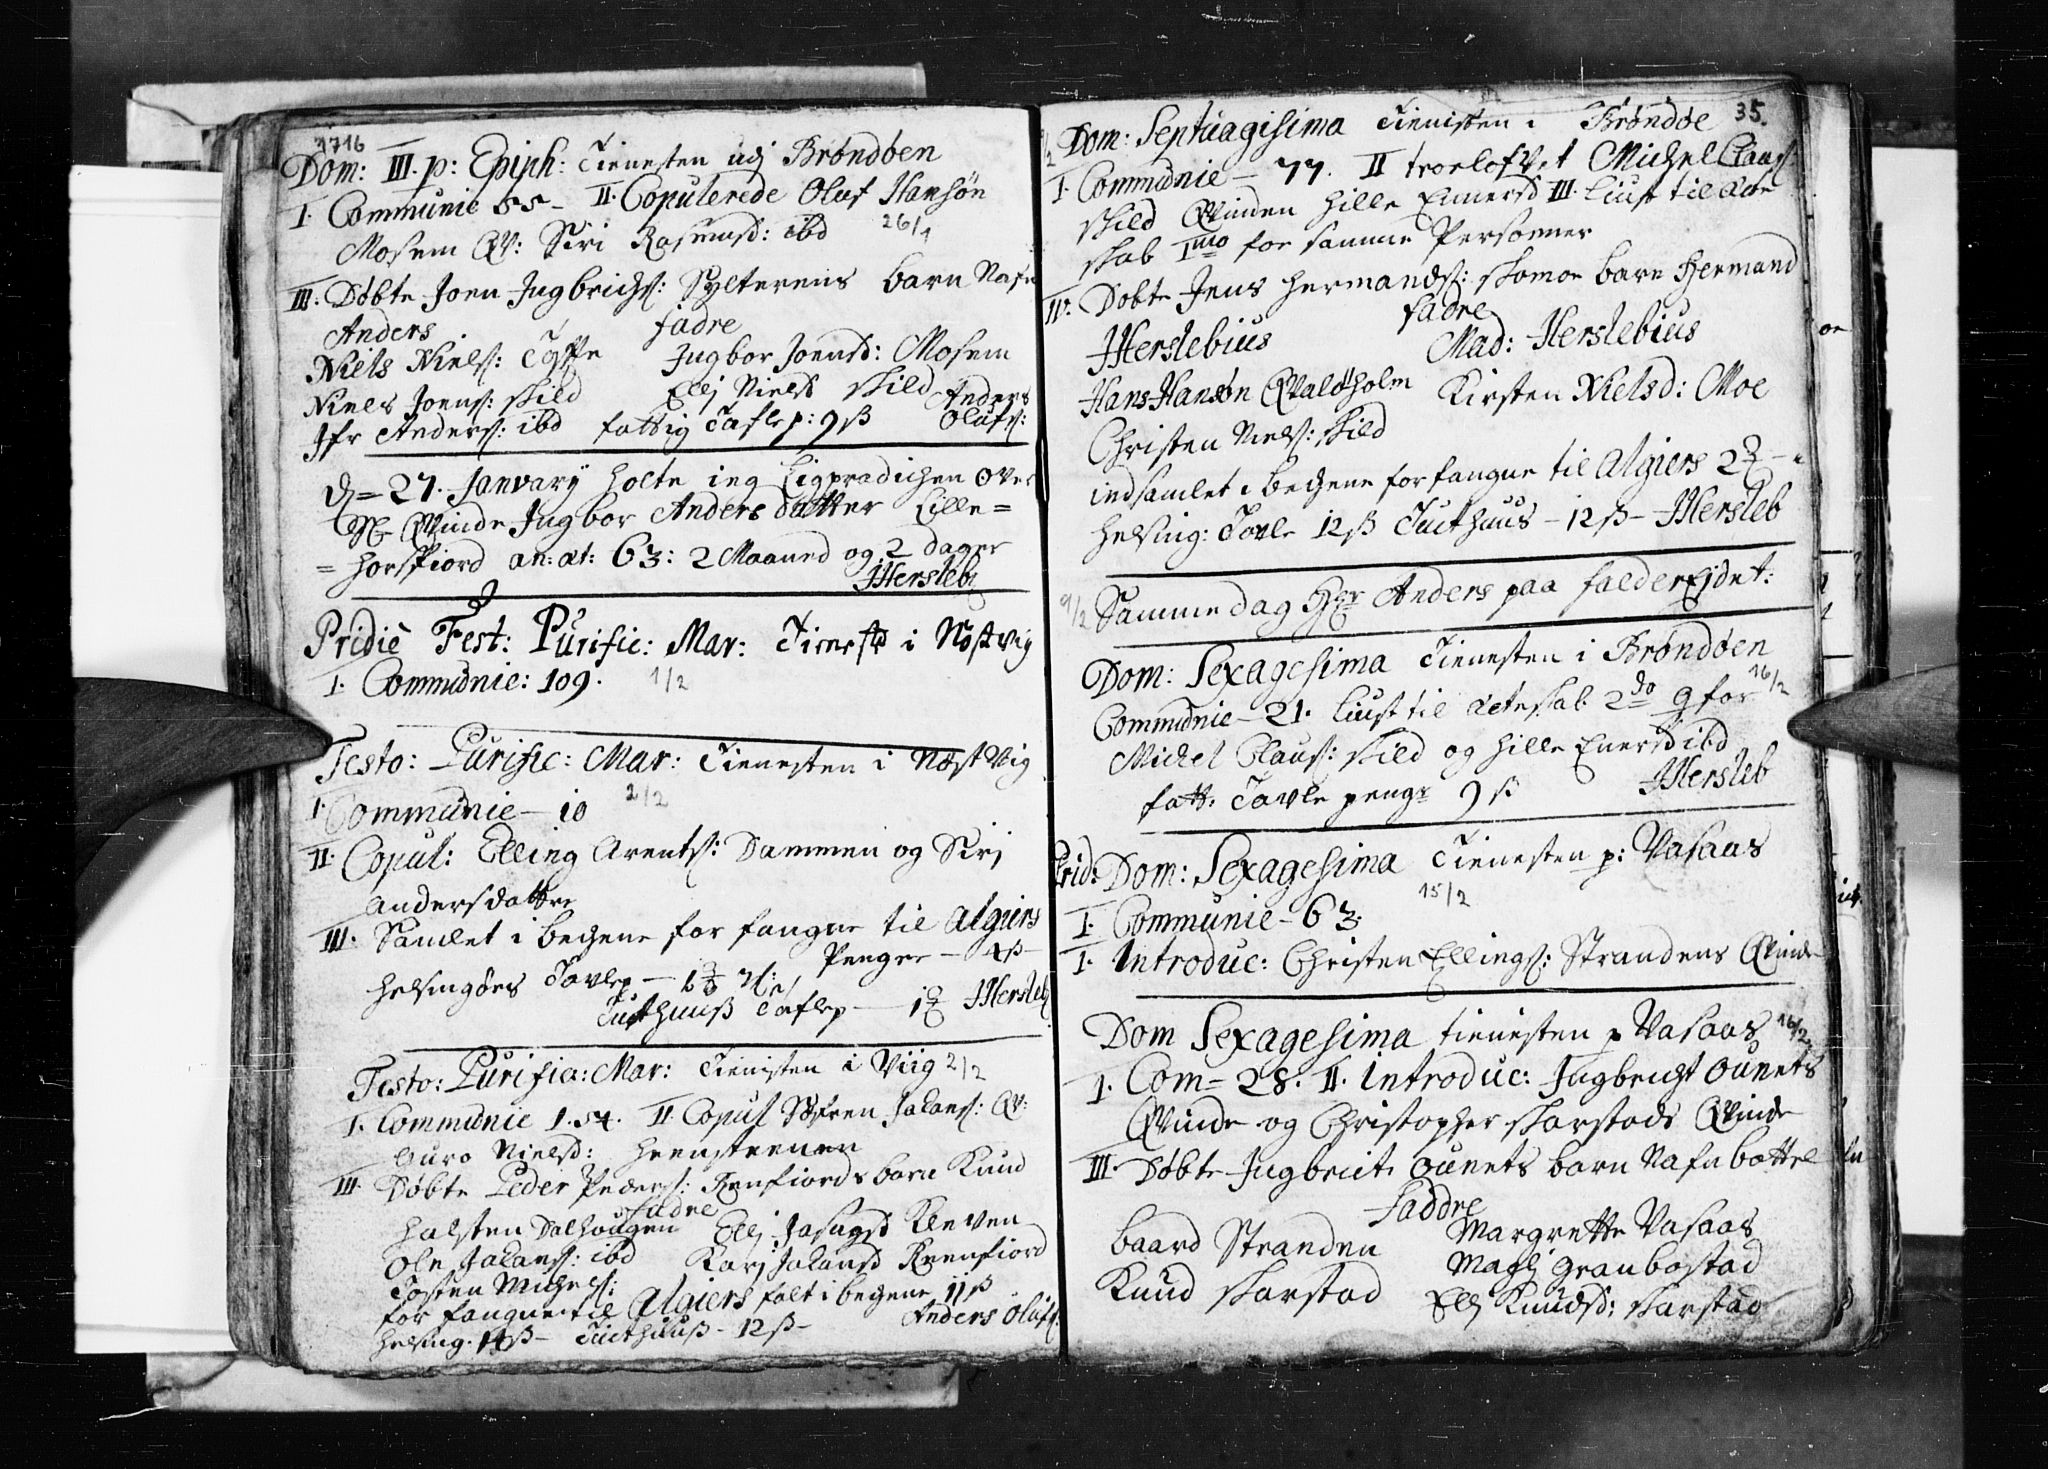 1716
Dom: III. p: Epiph: Tienesten udj Brøndøen
I. Communic 55 - II. Copulerede Oluf Hansøn
Mosem Qv: Siri Rasmusd: ibd 26/1
III. Døbte Joen Ingbrichs: Sylterens barn Nafn
Anders fadre
Niels Niels: Ingbor Joensd: Mosem
Niels Joens: skild Elj Nielsd skild Anders
Anders: ibd fattig Tafle p: 9 ß Olufs:
d = 27. January holte ieg Ligprædichen over
Sl. Qvinde Ingbor Anders datter Lille=
=horsfiord an: æt: 63: 2 Maaned og 2 dager
JHersleb
Pridiè Fest: Purific: Mar: Tieneste i Næstvig
I. Communic: 109. 1/2
Festo: Purific: Mar: Tienesten i Næst Vig
I. Communic - 10 2/2
II. Copul: Elling Arents: Dammen og Sirj
Andersdatter
III. Samlet i bechene for fangne til Algiers
Penger - 4 ß -
helsingørs Tavle
Tucthuuß Tafle JHersleb
Festo: Purific: Mar: Tienisten i Viig 2/2
I. Communic 154. II Copul Søfren Jalans: Qv:
Guro Nielsd: heensteenen
III. Døbte Peder Peders: Reenfiords barn Knud
fadre
halsten Dalhougen Elj Kleven
Ole Jalans: ibd Karj Jalansd Reenfiord
Tosten Michels:
for fangne til Algiers falt i bechene 11 ß
helsing. 14 ß - Tucthuuß - 12 ß - Anders Olufs:
35.
Dom: Septuagisima Tienisten i Brøndøe
I. Communic - 77. II troelofvet Michel Claus:
skild Qvinden hille Einersd III. Liust til Ecte
skab 1mo for samme Personer
IV. Døbte Jens Hermands: skomoe barn Hermand
fadre
JHerslebius Mad: Herslebius
Hans Hansøn Qvalholm Kirsten Nielsd: Moe
Christen Niels: skild
indsamlet i bechene for fangne til Algiers
helsing: Tavle 12 ß Tucthuus - 12 ß - JHersleb
9/2 Samme dag Hr Anders paa falderEidet:
Dom: Sexagesima Tienesten i Brøndøen
16/2
Communic - 21. Liust til Ecteskab 2do g for
Michel Claus: skild og hille Enersd ibd
fatt: Tavle penge 9 ß JHersleb
Prid: Dom: Sexagesima Tienesten p: Vasaas
15/2
I. Communic - 63.
I. Introduc: Christen Ellings: Strandens Qvinde
Dom Sexagesima tienesten p Vasaas 16/2
I. Com = 28. II. Introduc: Ingbricht Ounets
Qvinde og Christopher skarstads Qvinde
III. Døbte Ingbricte Ounets barn Nafn bottel
faddre
baard Stranden Margrette Vasaas
Knud skarstad Graubostad
Elj Knudsd: skarstad